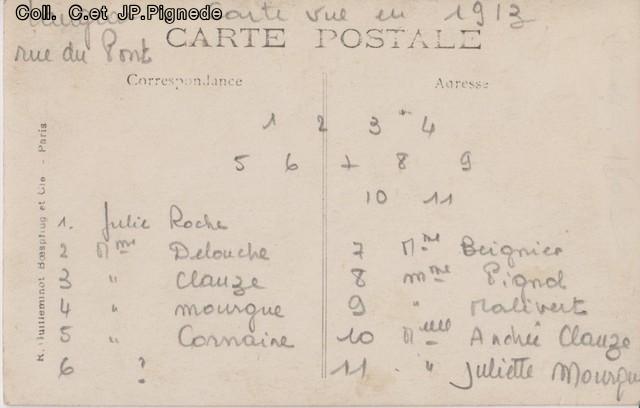 Coll. C.et JP.Pignede
Carte vue en 1913
CARTE POSTALE
rue du Pont
Correspondance Adresse
1 2 3 4
5 6 7 8 9
10 11
R. Guilleminot Bœspflug et Cie - Paris
1. Julie Roche
2 Mme Delouche
3 " Clauze
4 " Mourgue
5 " Cornaire
6 ?
7 Mme Beignier
8 Mme Pignol
9 " Malivert
10 Melle Andrée Clauze
11 " Juliette Mourgue